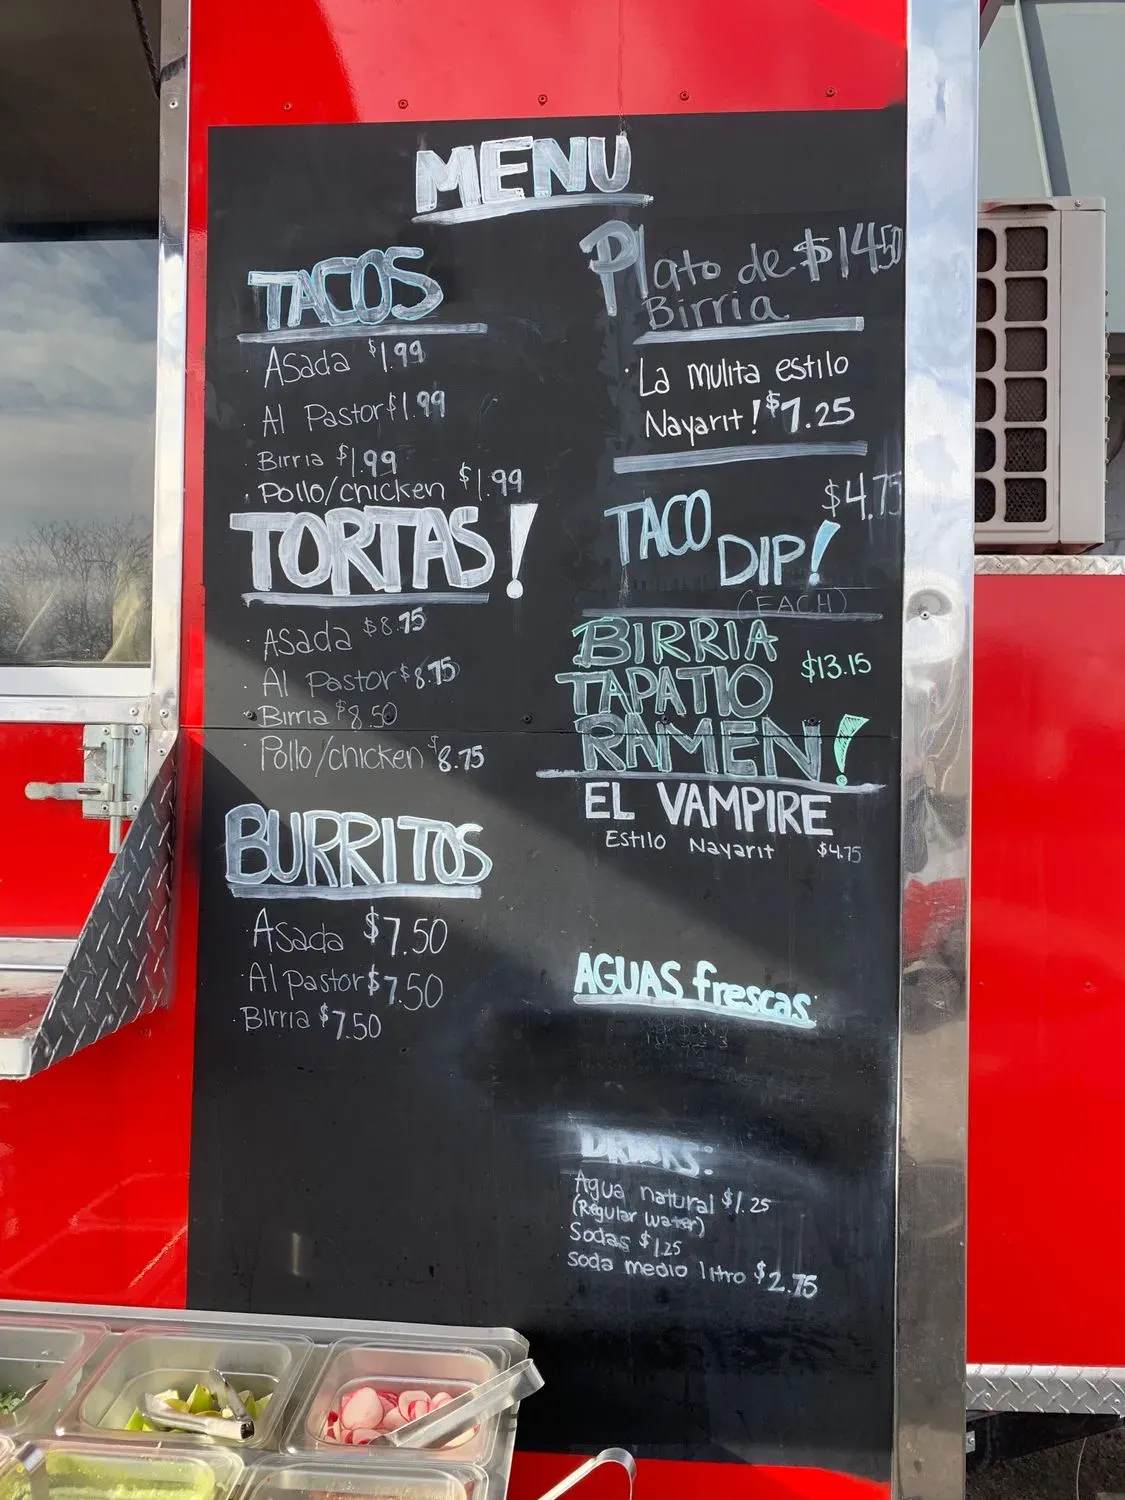 MENU
TACOS
Asada $1.99
Al Pastor $1.99
Birria $1.99
Pollo/chicken $1.99
TORTAS!
Asada $8.75
Al Pastor $8.75
Birria $8.50
Pollo/chicken $8.75
BURRITOS
Asada $7.50
Al Pastor $7.50
Birria $7.50
Plato de $14.50
Birria
La mulita estilo
Nayarit! $7.25
$4.75
TACO DIP!
(EACH)
BIRRIA
TAPATIO $13.15
RAMEN!
EL VAMPIRE
Estilo Nayarit $4.75
AGUAS frescas
DRINKS:
Agua natural $1.25
(Regular water)
Sodas $1.25
Soda medio litro $2.75